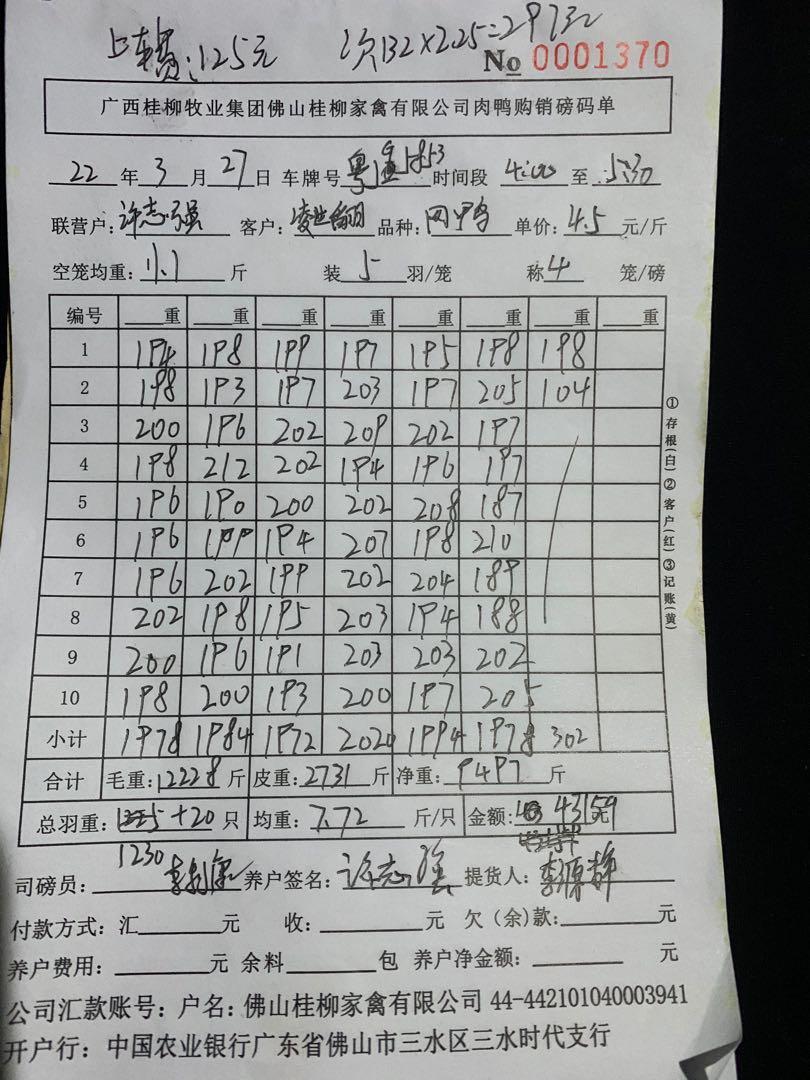 上车费:125元 次132×2.25=297元
No 0001370
广西桂柳牧业集团佛山桂柳家禽有限公司肉鸭购销磅码单
22 年 3 月 27 日 车牌号 粤 时间段 4:00 至 5:30
联营户: 许志强 客户: 品种: 单价: 4.5 元/斤
空笼均重: 11.1 斤 装 5 羽/笼 称 4 笼/磅
编号 重 重 重 重 重 重 重 重
1 194 198 199 197 195 198 198
2 198 193 197 203 197 205 104
3 200 196 202 209 202 197
4 198 212 202 194 196 197
5 196 190 200 202 208 187
6 196 199 194 207 198 210
7 196 202 199 202 204 189
8 202 198 195 203 194 188
9 200 196 191 203 203 202
10 198 200 193 200 197 205
小计 1978 1984 1972 2020 1994 1978 302
合计 毛重: 12228 斤 皮重: 2731 斤 净重: 9497 斤
总羽重: +20 只 均重: 7.72 斤/只 金额: 43159 元
1230
司磅员: 养户签名: 许志强 提货人:
付款方式: 汇 元 收: 元 欠(余)款: 元
养户费用: 元 余料 包 养户净金额: 元
公司汇款账号: 户名: 佛山桂柳家禽有限公司 44-442101040003941
开户行: 中国农业银行广东省佛山市三水区三水时代支行
①存根(白)②客户(红)③记账(黄)